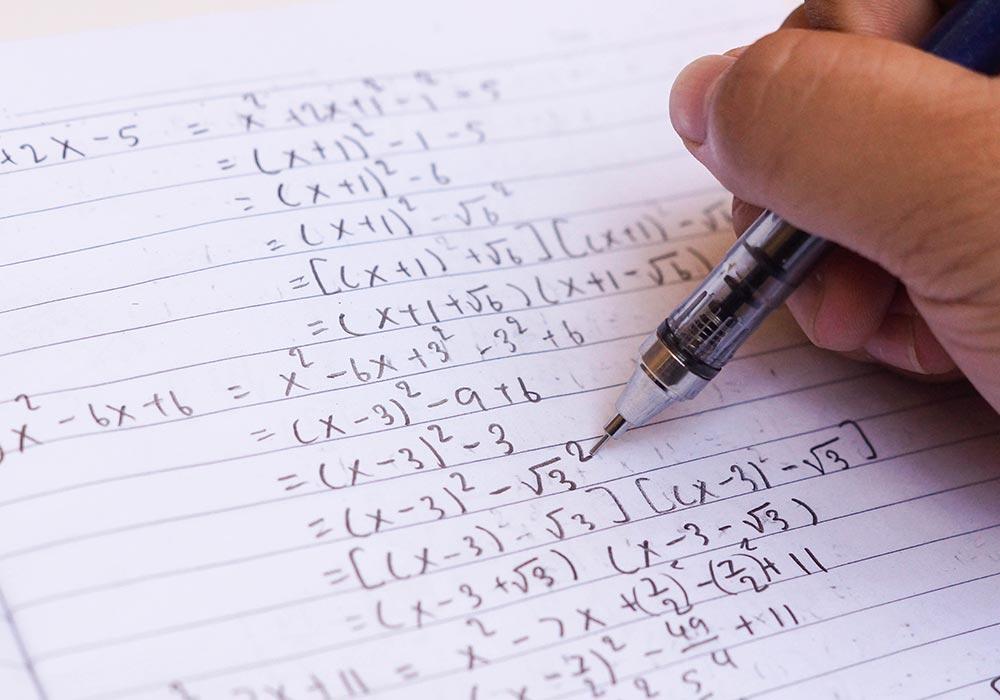 +2x-5 = x²+2x+1²-1²-5
= (x+1)²-1-5
= (x+1)²-6
= (x+1)²-√6²
= [(x+1)²+√6][(x+1)²-√6
= (x+1+√6)(x+1-√6)
x²-6x+6 = x²-6x+3²-3²+6
= (x-3)²-9+6
= (x-3)²-3
= (x-3)²-√3²
= [(x-3)-√3][(x-3)-√3]
= (x-3+√3)(x-3-√3)
7x+11 = x²-7x+(7/2)²-(7/2)²+11
(x-7/2)²-49/4+11